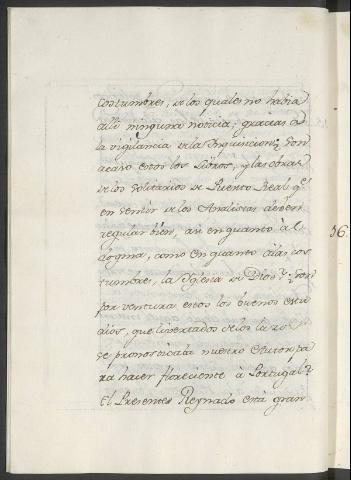 costumbres; de los quales no habia
alli ninguna noticia; gracias a
la vigilancia de la Inquisicion; son
acaso estos los Libros, y las obras
de los solitarios de Puerto Real qe.
en sentir de los Analistas deben
regular bien, asi en quanto àl
dogma, como en quanto à las cos
tumbres, la Iglesia de Dios? ¿son
por ventura estos los buenos estu
dios, que libertados de los
se pronosticaba nuestro Autor pa
ra hacer floreciente à Portugal?
El Presente Reynado està gran
36.